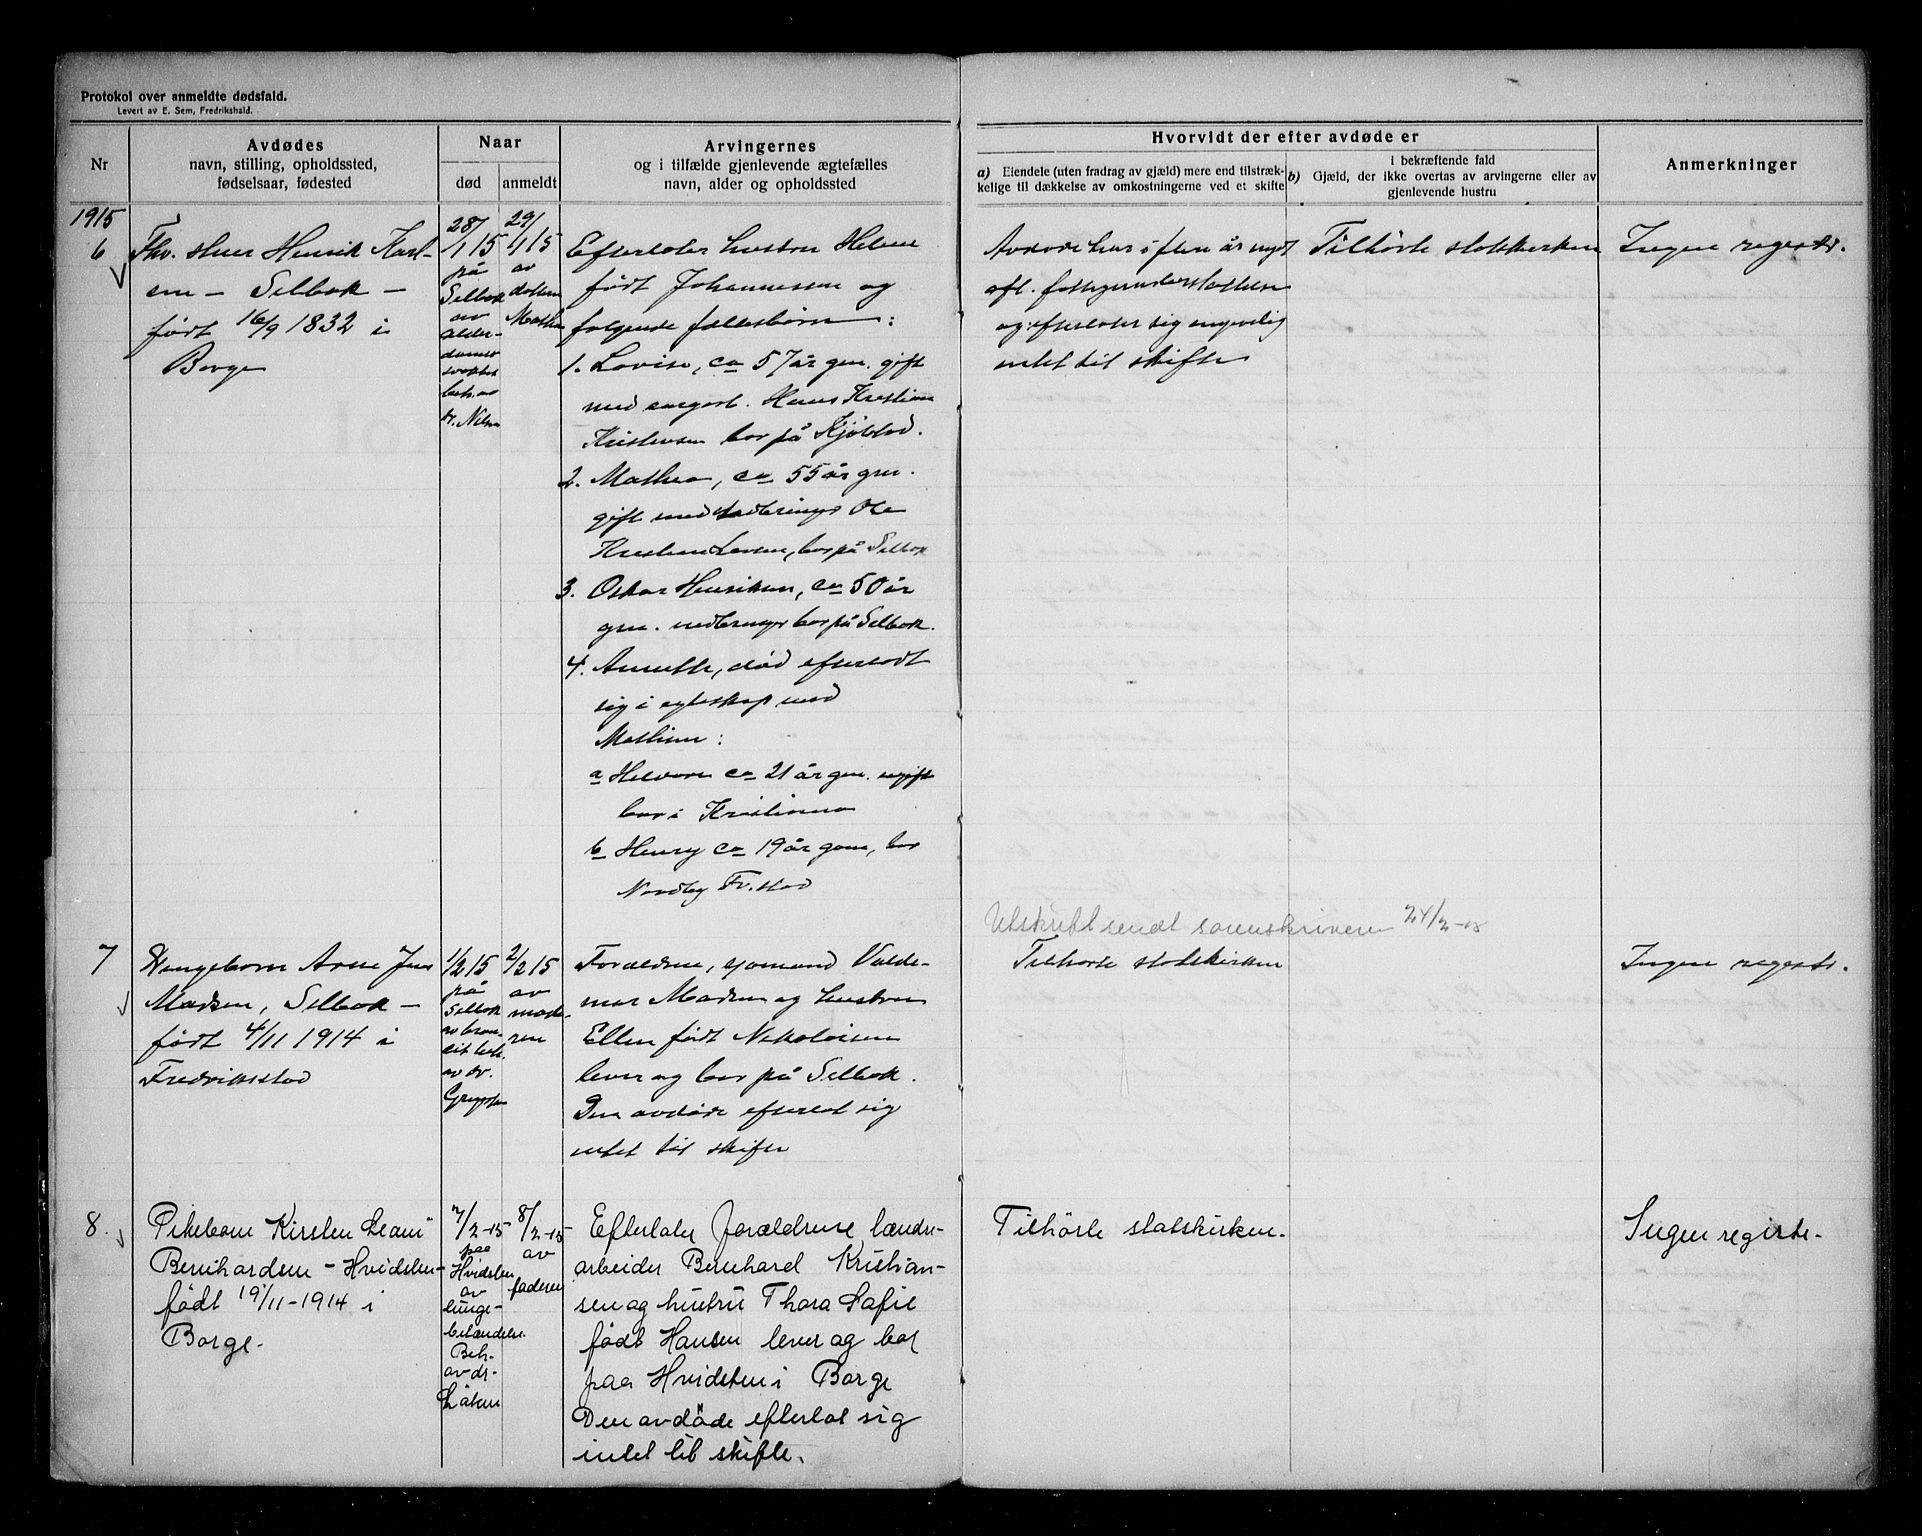 Protokol over anmeldte dødsfald.
Levert av E. Sem, Fredrikshald.
Nr
Avdødes
navn, stilling, opholdssted,
fødselsaar, fødested
Naar
død
anmeldt
Arvingernes
og i tilfælde gjenlevende ægtefælles
navn, alder og opholdssted
Hvorvidt der efter avdøde er
a) Eiendele (uten fradrag av gjæld) mere end tilstræk-
kelige til dækkelse av omkostningerne ved et skifte
i bekræftende fald
b) Gjæld, der ikke overtas av arvingerne eller av
gjenlevende hustru
Anmerkninger
1915
6
Fhv. Henrik Karl-
sen – Selbak –
født 16/9 1832 i
Borge
28/
1 15
på
Selbak
av
alder-
doms
svakhet
beh. av
dr. Nilsen
29/
1 15
av
datteren
Mathea
Efterlater hustru Helene
født Johannessen og
følgende fællesbørn:
1. Lovise, ca 57 år gm. gift
med Hans Kristian
Kristensen bor på Kjølstad.
2. Mathea, ca 55 år gm.
gift med Ole
Kristian Larsen, bor på Selbak
3. Oskar Henriksen, ca 50 år
gm. bor på Selbak.
4. Annette, død efterlodt
sig i egteskap med
Mathisen:
a ca 21 år gm. ugift
bor i Kristiania
b Henry ca 19 år gam, bor
Nordby Fr.stad
Avdøde har i flere år nydt
fattigunderstøttelse
og efterlater sig angivelig
intet til skifte
Tilhørte statskirken
Ingen registr.
Utskrift sendt sorenskriveren 24/2-15
7
Drengebarn Arne Jens
Madsen, Selbak –
født 4/11 1914 i
Fredriksstad
1/2 15
på
Selbak
av bron-
kit beh.
av dr.
2/2 15
av
mode-
ren
Forældrene, sjømand Valde-
mar Madsen og hustru
Ellen født Nikolaisen
lever og bor på Selbak.
Den avdøde efterlot sig
intet til skifte
Tilhørte statskirken
Ingen registr.
8.
Pikebarn Kirsten
Bernhardsen – Hvidsten –
født 19/11-1914 i
Borge.
7/2-15
paa
Hvidsten
av
lunge-
betændelse.
Beh.
av dr.
8/2-15
av
faderen
Efterlater forældrene
arbeider Bernhard Kristian-
sen og hustru Thora Lafie
født Hansen lever og bor
paa Hvidsten i Borge
Den avdøde efterlot sig
intet til skifte.
Tilhørte statskirken.
Ingen registr.